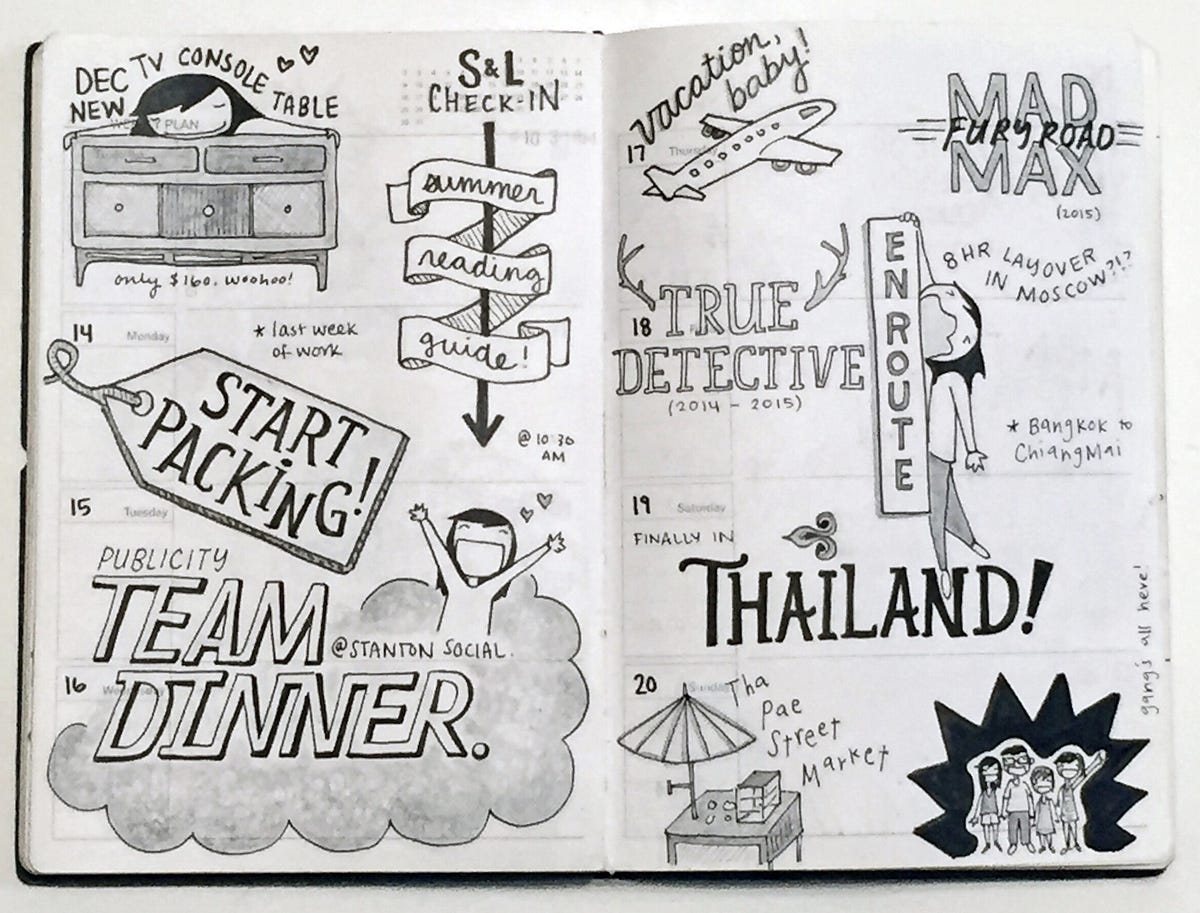 DEC TV CONSOLE
NEW TABLE
PLAN
only $160. woohoo!
S&L
CHECK-IN
summer
reading
guide!
@ 10:30
AM
14 Monday
* last week
of work
START
PACKING!
15 Tuesday
PUBLICITY
TEAM
@STANTON SOCIAL.
16 Wednesday
DINNER.
vacation,
baby!
17 Thursday
MAD
FURY ROAD
MAX
(2015)
18
TRUE
DETECTIVE
(2014 - 2015)
ENROUTE
8HR LAYOVER
IN MOSCOW?!?
* Bangkok to
ChiangMai
19 Saturday
FINALLY IN
THAILAND!
gang's all here!
20 Sunday
Tha
Pae
Street
Market